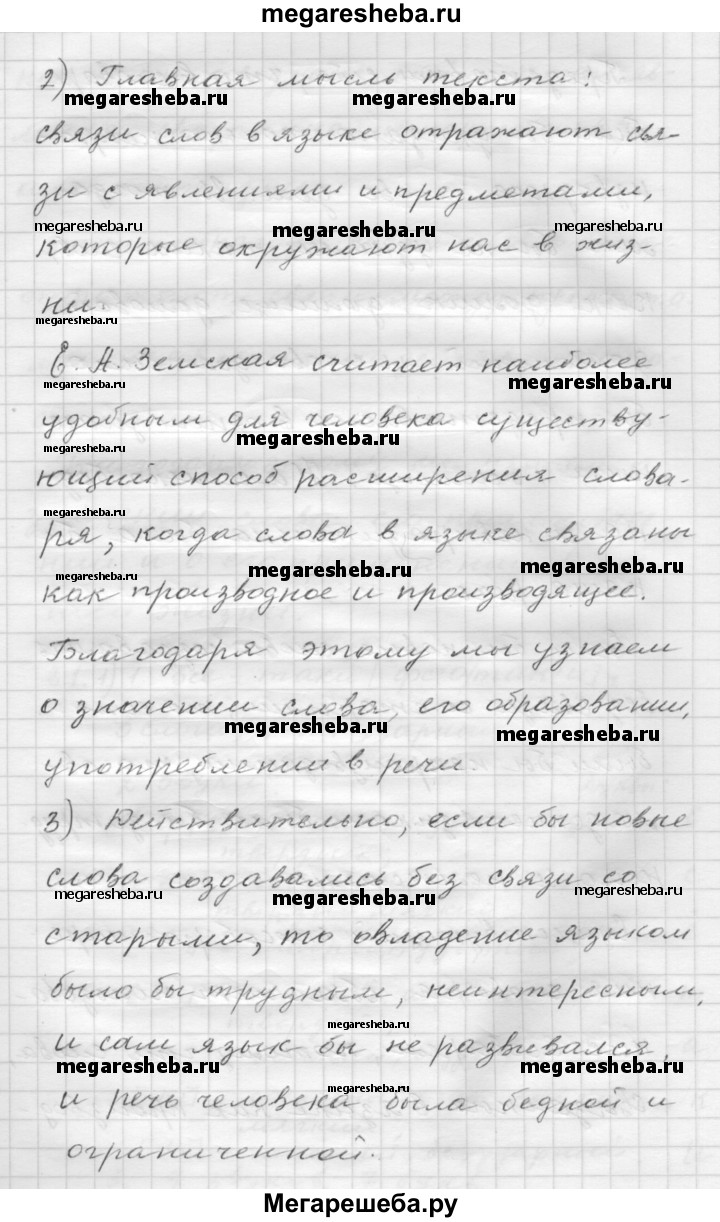 megaresheba.ru
2) Главная мысль текста:
megaresheba.ru megaresheba.ru
связи слов в языке отражают свя-
зи с явлениями и предметами,
megaresheba.ru megaresheba.ru megaresheba.ru
которые окружают нас в жиз-
ни.
megaresheba.ru
Е. А. Земская считает наиболее
megaresheba.ru megaresheba.ru
удобным для человека существу-
megaresheba.ru
ющий способ расширения слова-
megaresheba.ru
ря, когда слова в языке связаны
megaresheba.ru megaresheba.ru megaresheba.ru
как производное и производящее.
Благодаря этому мы узнаем
о значении слова, его образовании,
megaresheba.ru
употреблении в речи.
3) Действительно, если бы новые
слова создавались без связи со
megaresheba.ru megaresheba.ru megaresheba.ru
старыми, то овладение языком
было бы трудным, неинтересным,
megaresheba.ru
и сам язык бы не развивался,
megaresheba.ru megaresheba.ru megaresheba.ru
и речь человека была бедной и
ограниченной.
Мегарешеба.ру